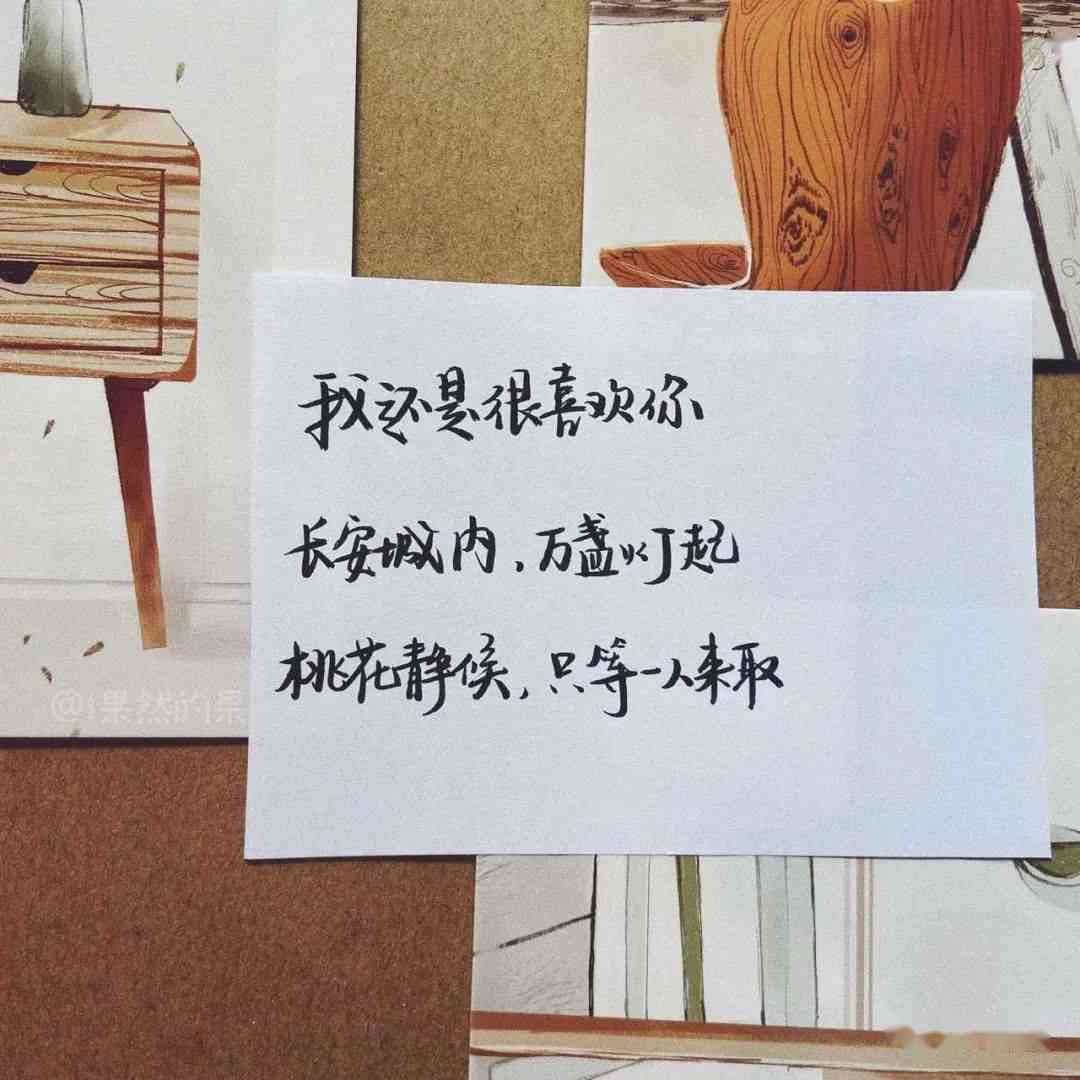 我还是很喜欢你
长安城内，万盏灯起
桃花静候，只等一人来取
@i果然的i